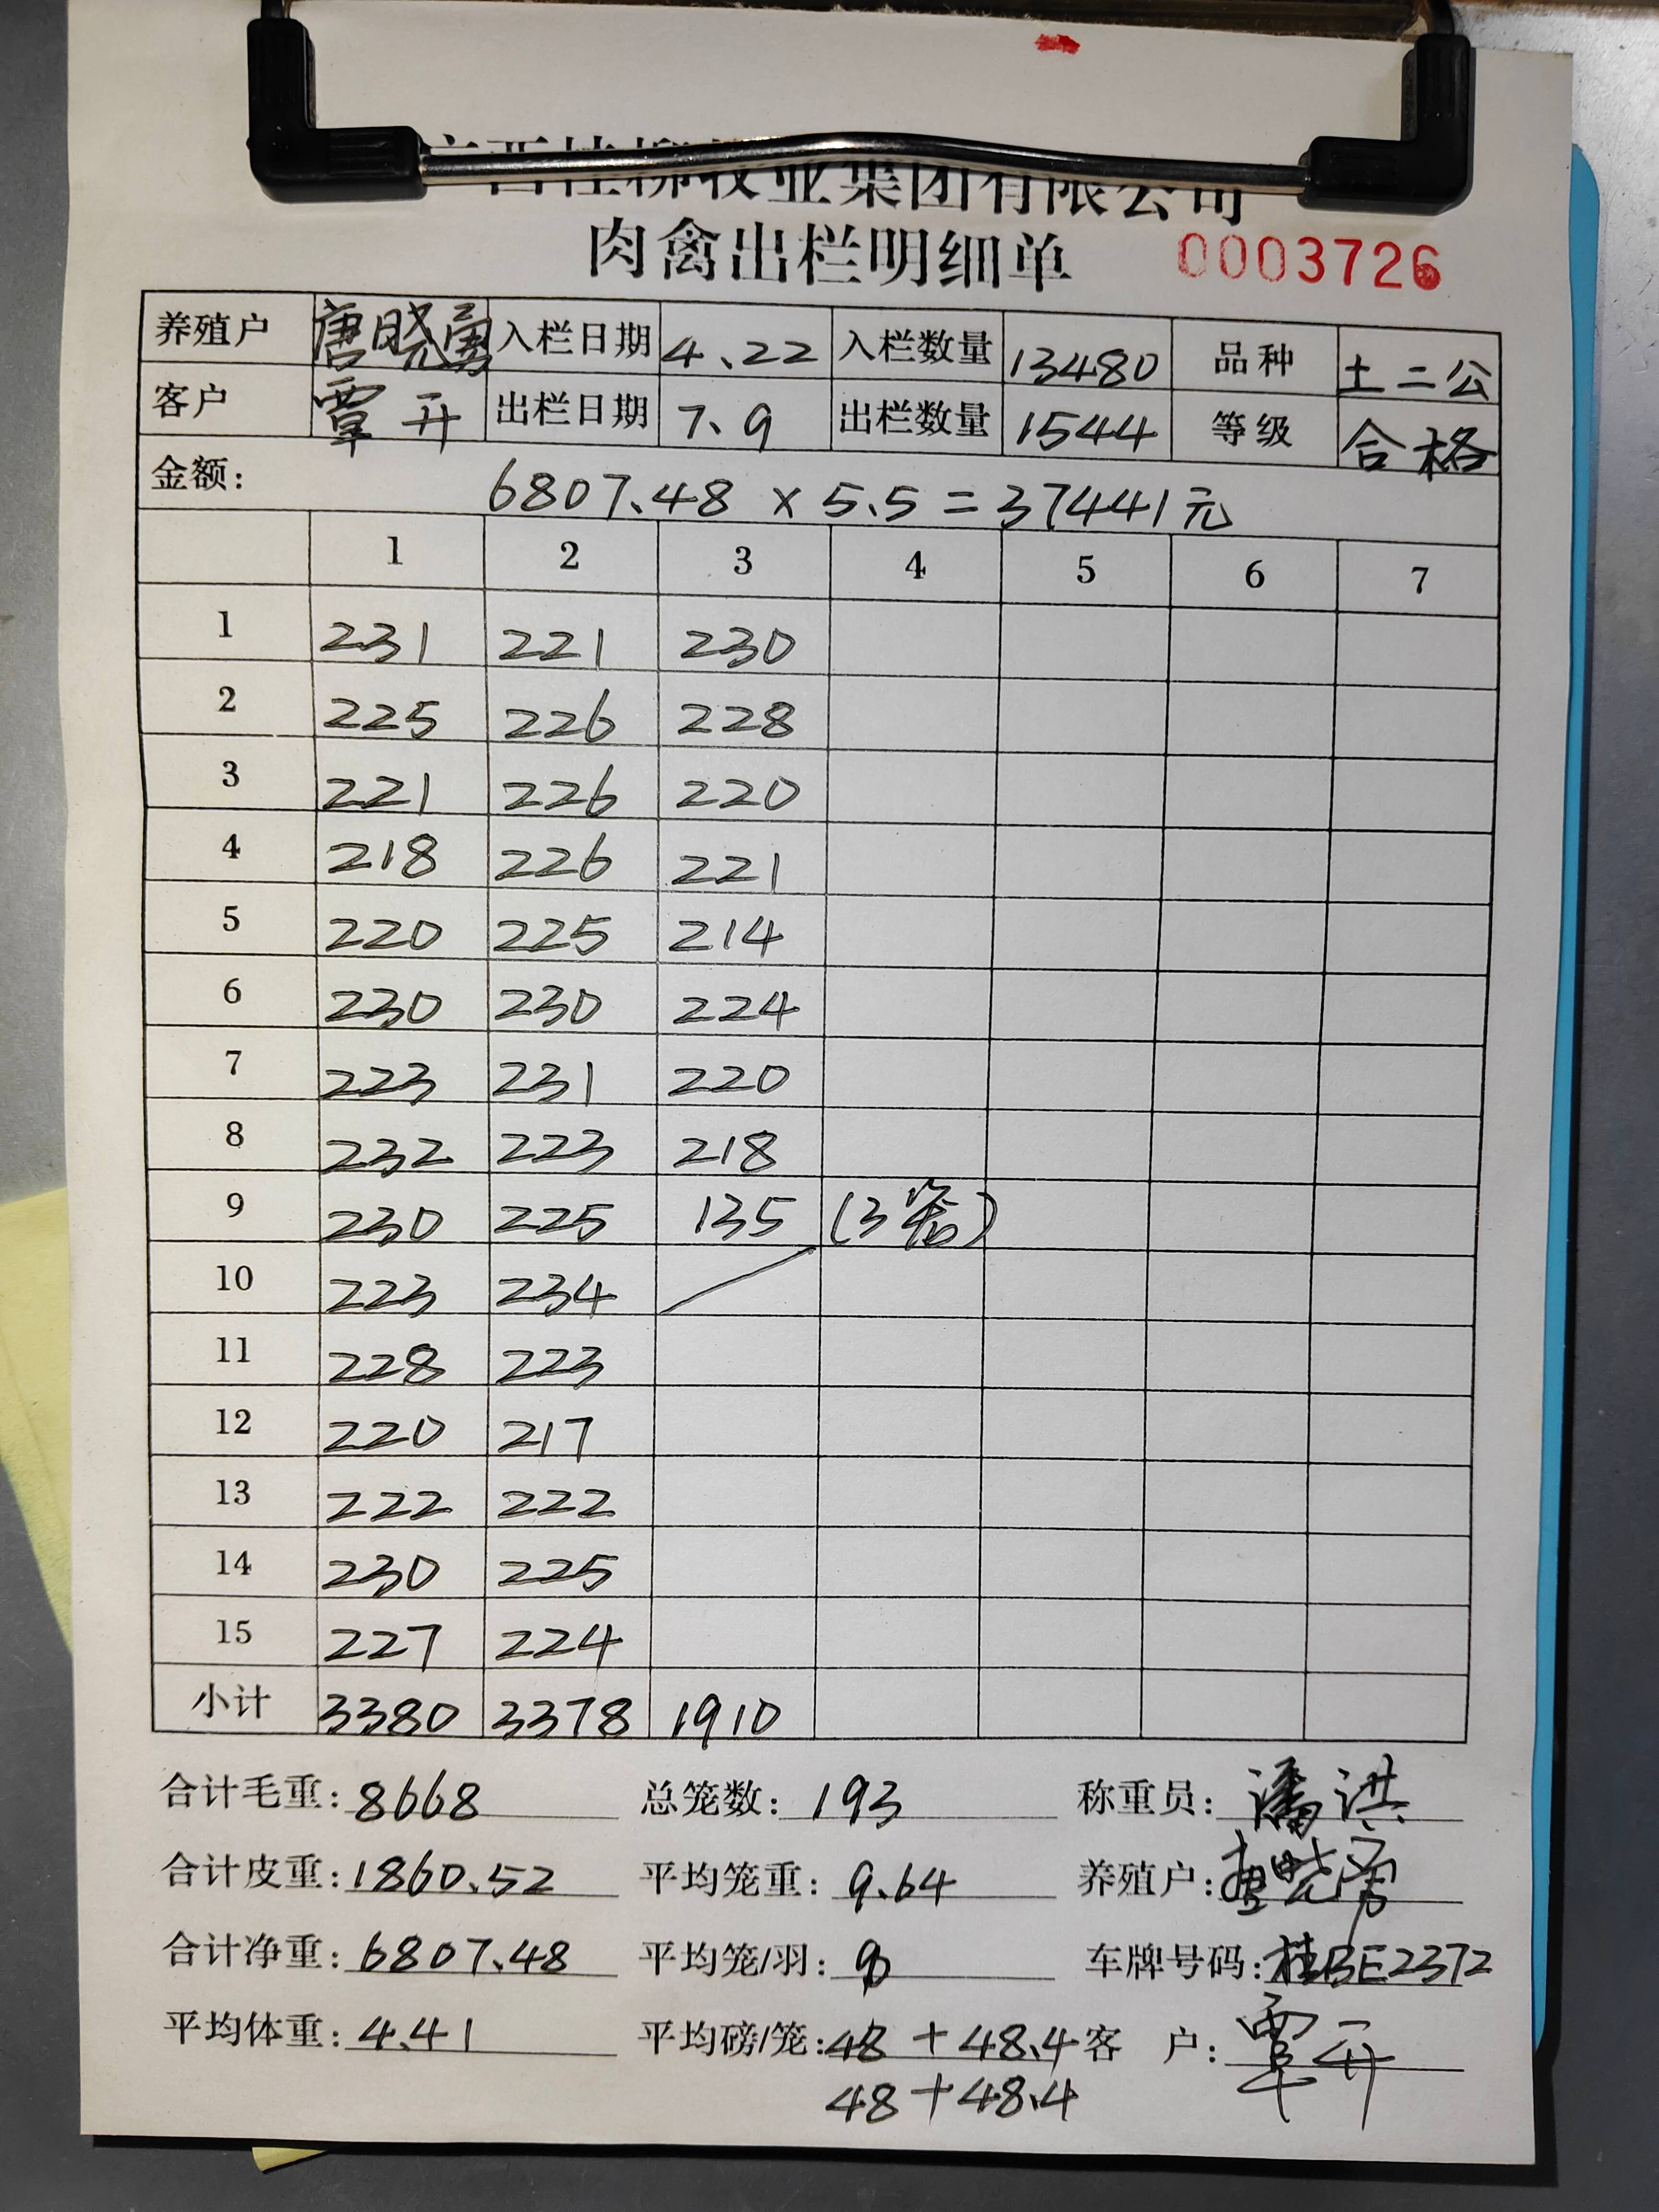 西桂柳牧业集团有限公司
肉禽出栏明细单 0003726
养殖户 唐晓勇 入栏日期 4.22 入栏数量 13480 品种 土二公
客户 覃开 出栏日期 7.9 出栏数量 1544 等级 合格
金额: 6807.48 × 5.5 = 37441元
1 2 3 4 5 6 7
1 231 221 230
2 225 226 228
3 221 226 220
4 218 226 221
5 220 225 214
6 230 230 224
7 223 231 220
8 232 223 218
9 230 225 135 (3笼)
10 223 234
11 228 223
12 220 217
13 222 222
14 230 225
15 227 224
小计 3380 3378 1910
合计毛重: 8668 总笼数: 193 称重员: 潘洪
合计皮重: 1860.52 平均笼重: 9.64 养殖户: 唐晓勇
合计净重: 6807.48 平均笼/羽: 车牌号码: 桂BE2372
平均体重: 4.41 平均磅/笼: 48 + 48.4 客户: 覃开
48 + 48.4